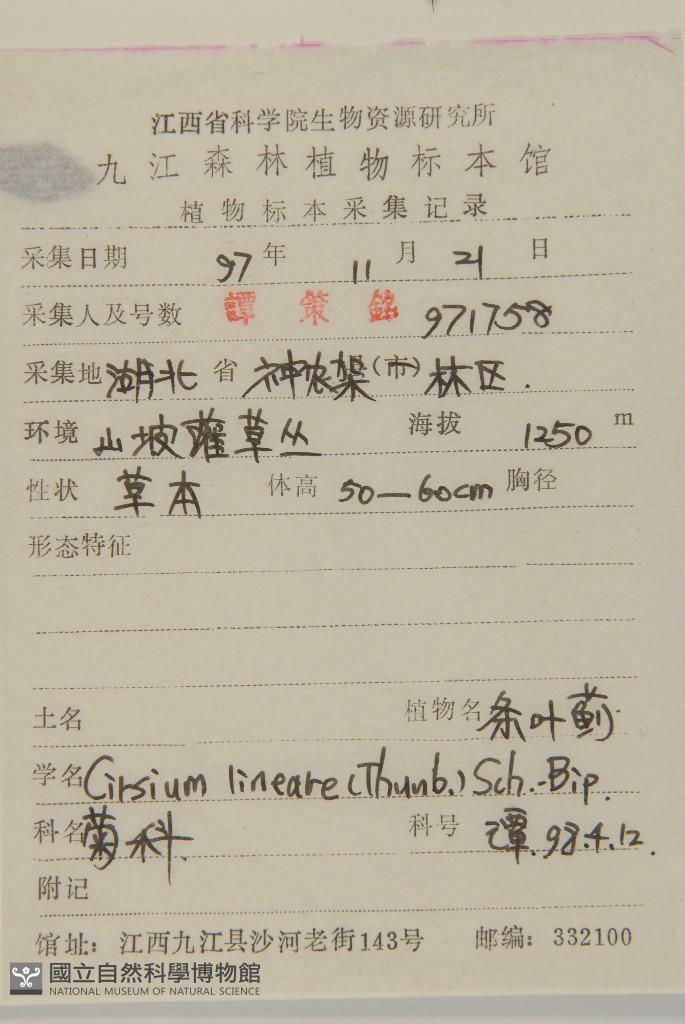 江西省科学院生物资源研究所
九江森林植物标本馆
植物标本采集记录
采集日期 97 年 11 月 21 日
采集人及号数 譚策銘 971758
采集地 湖北 省 神农架(市) 林区.
环境 山坡灌草丛 海拔 1250 m
性状 草本 体高 50—60cm 胸径
形态特征
土名 植物名 条叶蓟
学名 Cirsium lineare (Thunb.) Sch.-Bip.
科名 菊科 科号 谭. 98.4.12.
附记
馆址：江西九江县沙河老街143号 邮编：332100
國立自然科學博物館
NATIONAL MUSEUM OF NATURAL SCIENCE